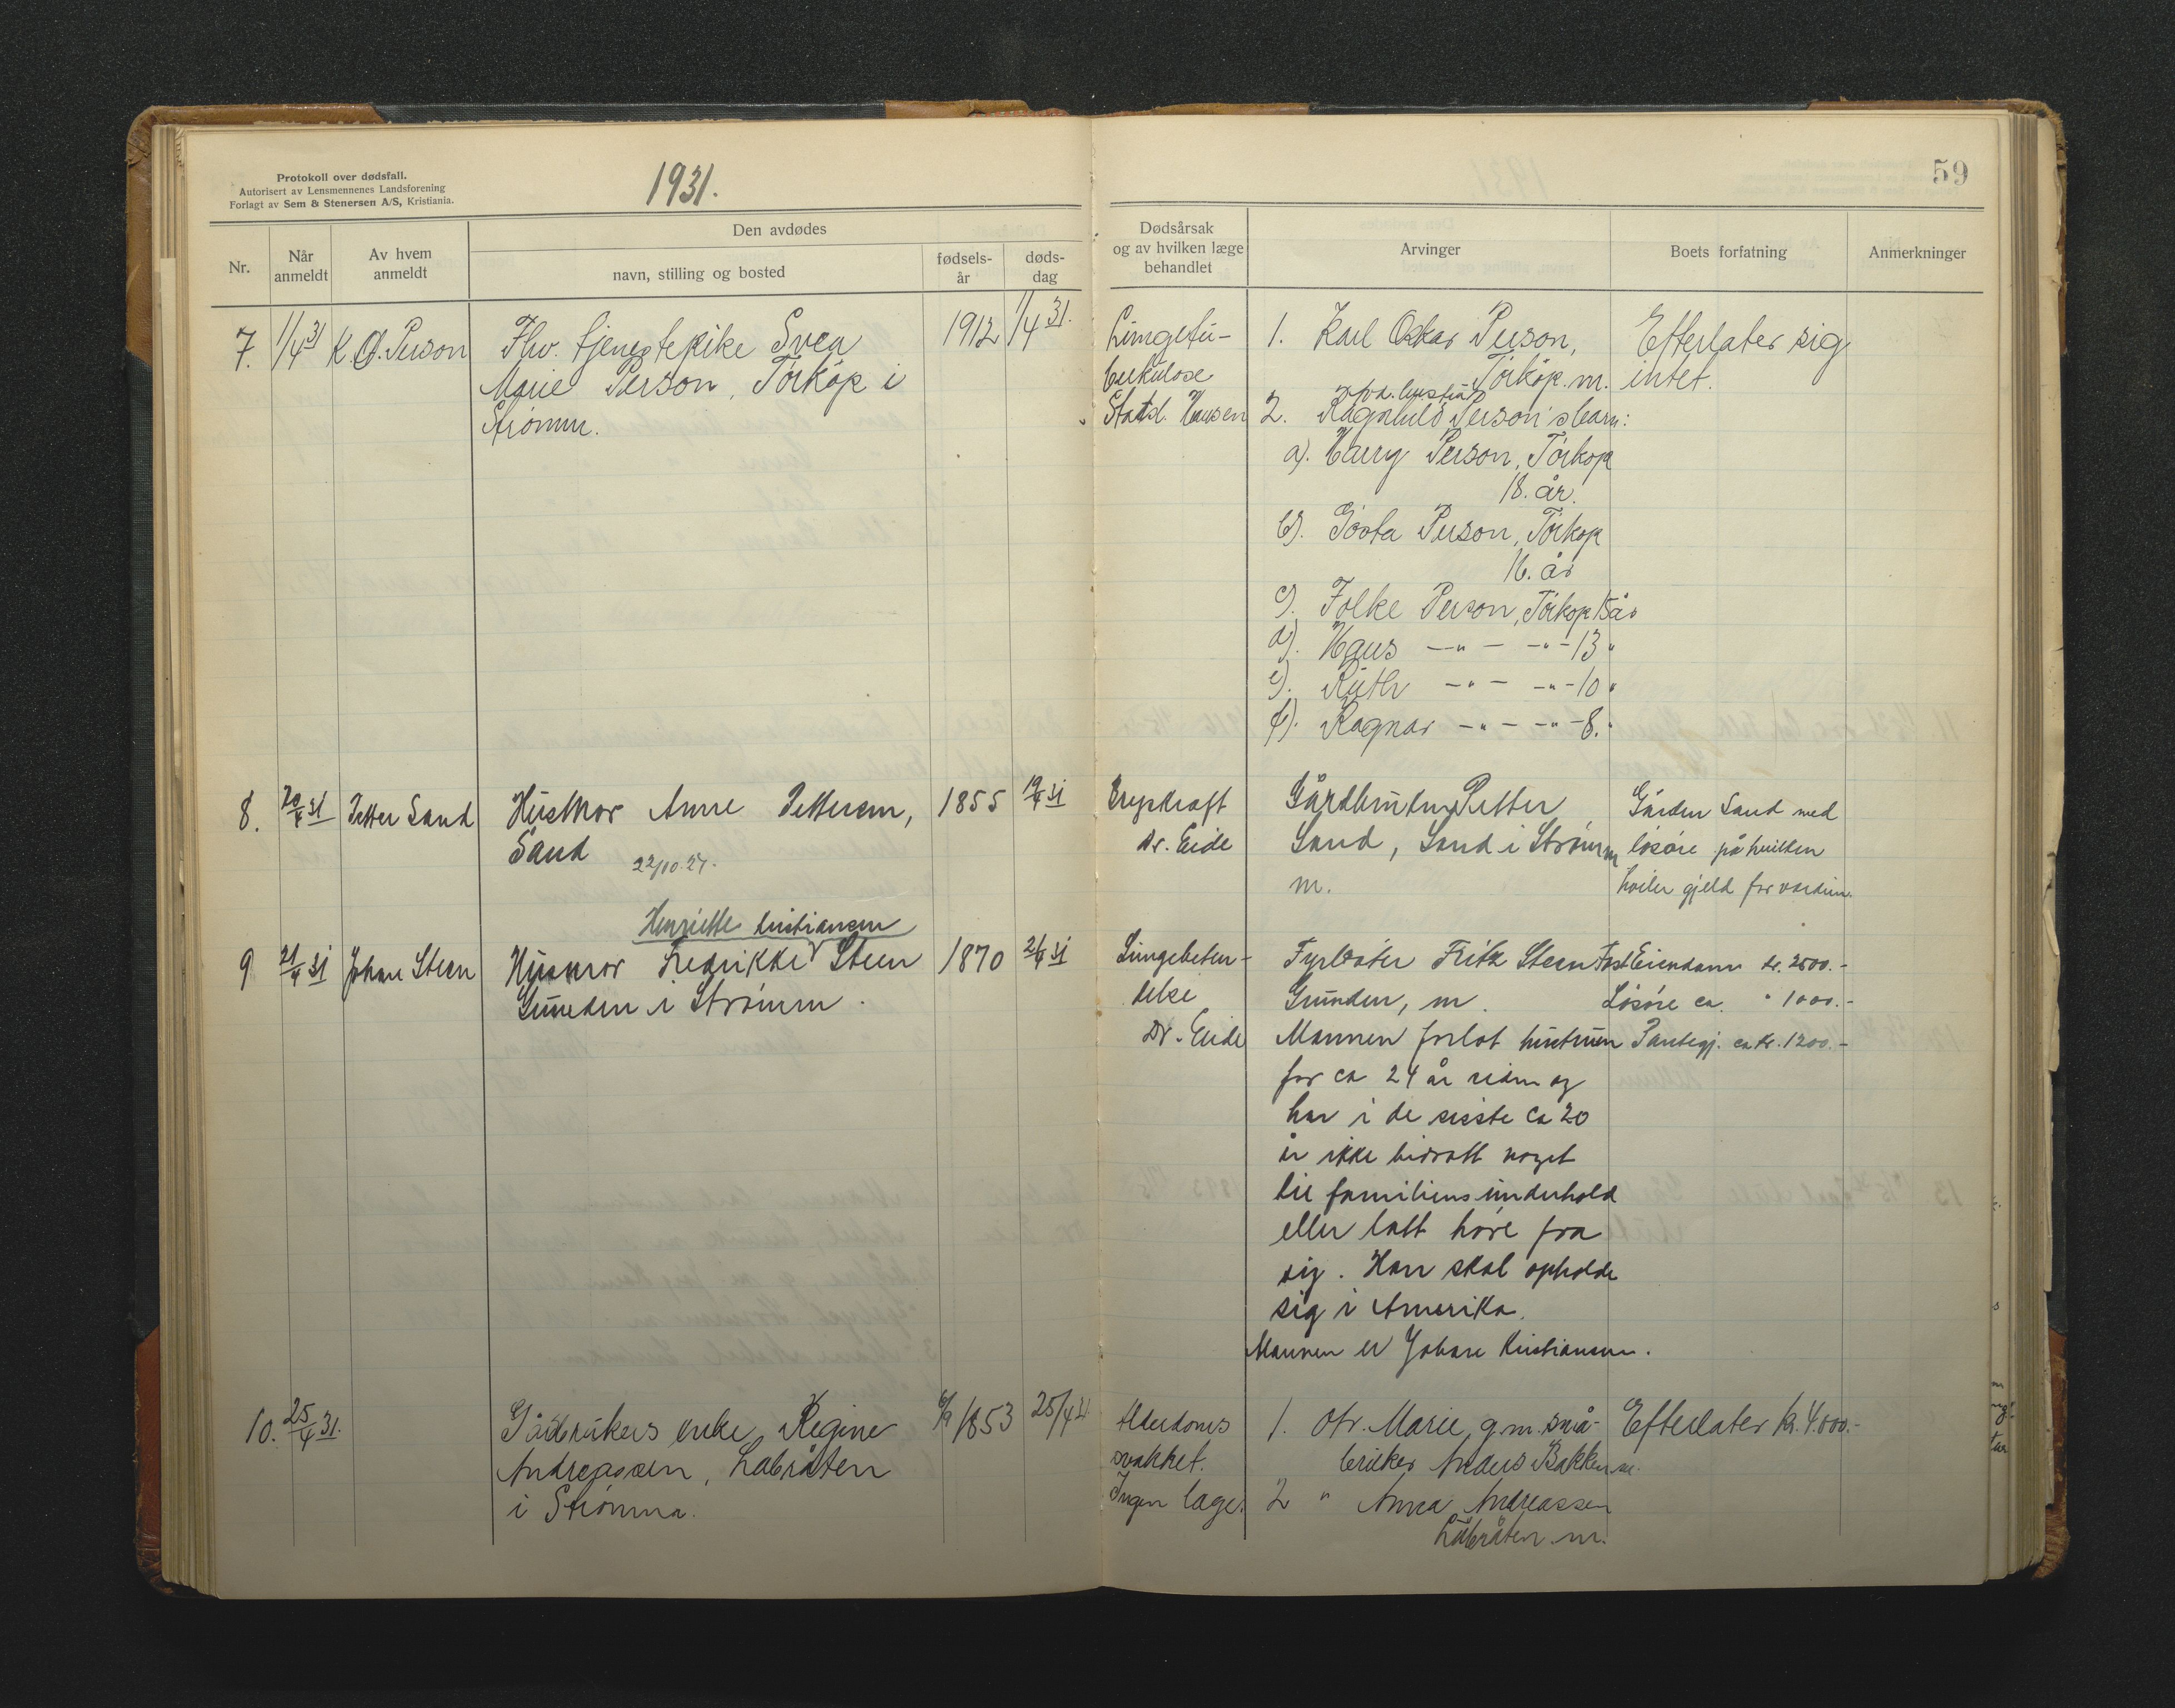 Protokoll over dødsfall.
Autorisert av Lensmennenes Landsforening
Forlagt av Sem & Stenersen A/S, Kristiania.
1931.
59
Nr.
Når anmeldt
Av hvem anmeldt
Den avdødes
navn, stilling og bosted
fødselsår
dødsdag
Dødsårsak
og av hvilken læge
behandlet
Arvinger
Boets forfatning
Anmerkninger
7. 1/4 31 K. O. Person Fhv. tjenestepike Svea 1912 1/4 31.
Marie Person, Törkop i
Strömm.
Lungetu-
berkulose
Statsl. Hansen
1. Karl Oskar Person,
Törkop. m.
2. Ragnhild Person's barn:
a). Harry Person, Törkop
18. år.
b). Gösta Person, Törkop
16. år
c). Folke Person, Törkop 15 år
d). Hans —"— —"— 13 "
e). Ruth —"— —"— 10 "
f). Ragnar —"— —"— 8. "
Efterlater sig
intet.
8. 20/4 31 Petter Sand Husmor Anne Pettersen, 1855 19/4 31
Sand 22/10.27.
Dr. Eide
Gårdbruker Petter
Sand, Sand i Strömm
m.
Gården Sand med
lösöre på hvilken
hviler gjeld for verdien.
Henriette Kristiansen
9 21/4 31 Johan Steen Husmor Fredrikke Steen 1870 21/4 31
Grunden i Strömm.
Lungebeten-
delse
Dr. Eide
Fritz Steen
Grunden, m.
Mannen forlot hustruen
for ca 24 år siden og
har i de sisste ca 20
år ikke bidratt noget
til familiens underhold
eller latt höre fra
sig. Han skal opholde
sig i Amerika.
Mannen er Johan Kristiansen.
Fast Eiendom kr. 2500.-
Lösöre ca. " 1000.-
Pantegj. ca kr. 1200.-
10. 25/4 31. Gårdbrukers enke Regine 6/9 1853 25/4 31
Andreassen, Labråten
i Strömm.
Alderdoms
svakhet.
Ingen læge.
1. dtr. Marie, g.m. små-
bruker Anders Bakken m.
2 " Anna Andreassen
Labråten m.
Efterlater kr. 4.000.-